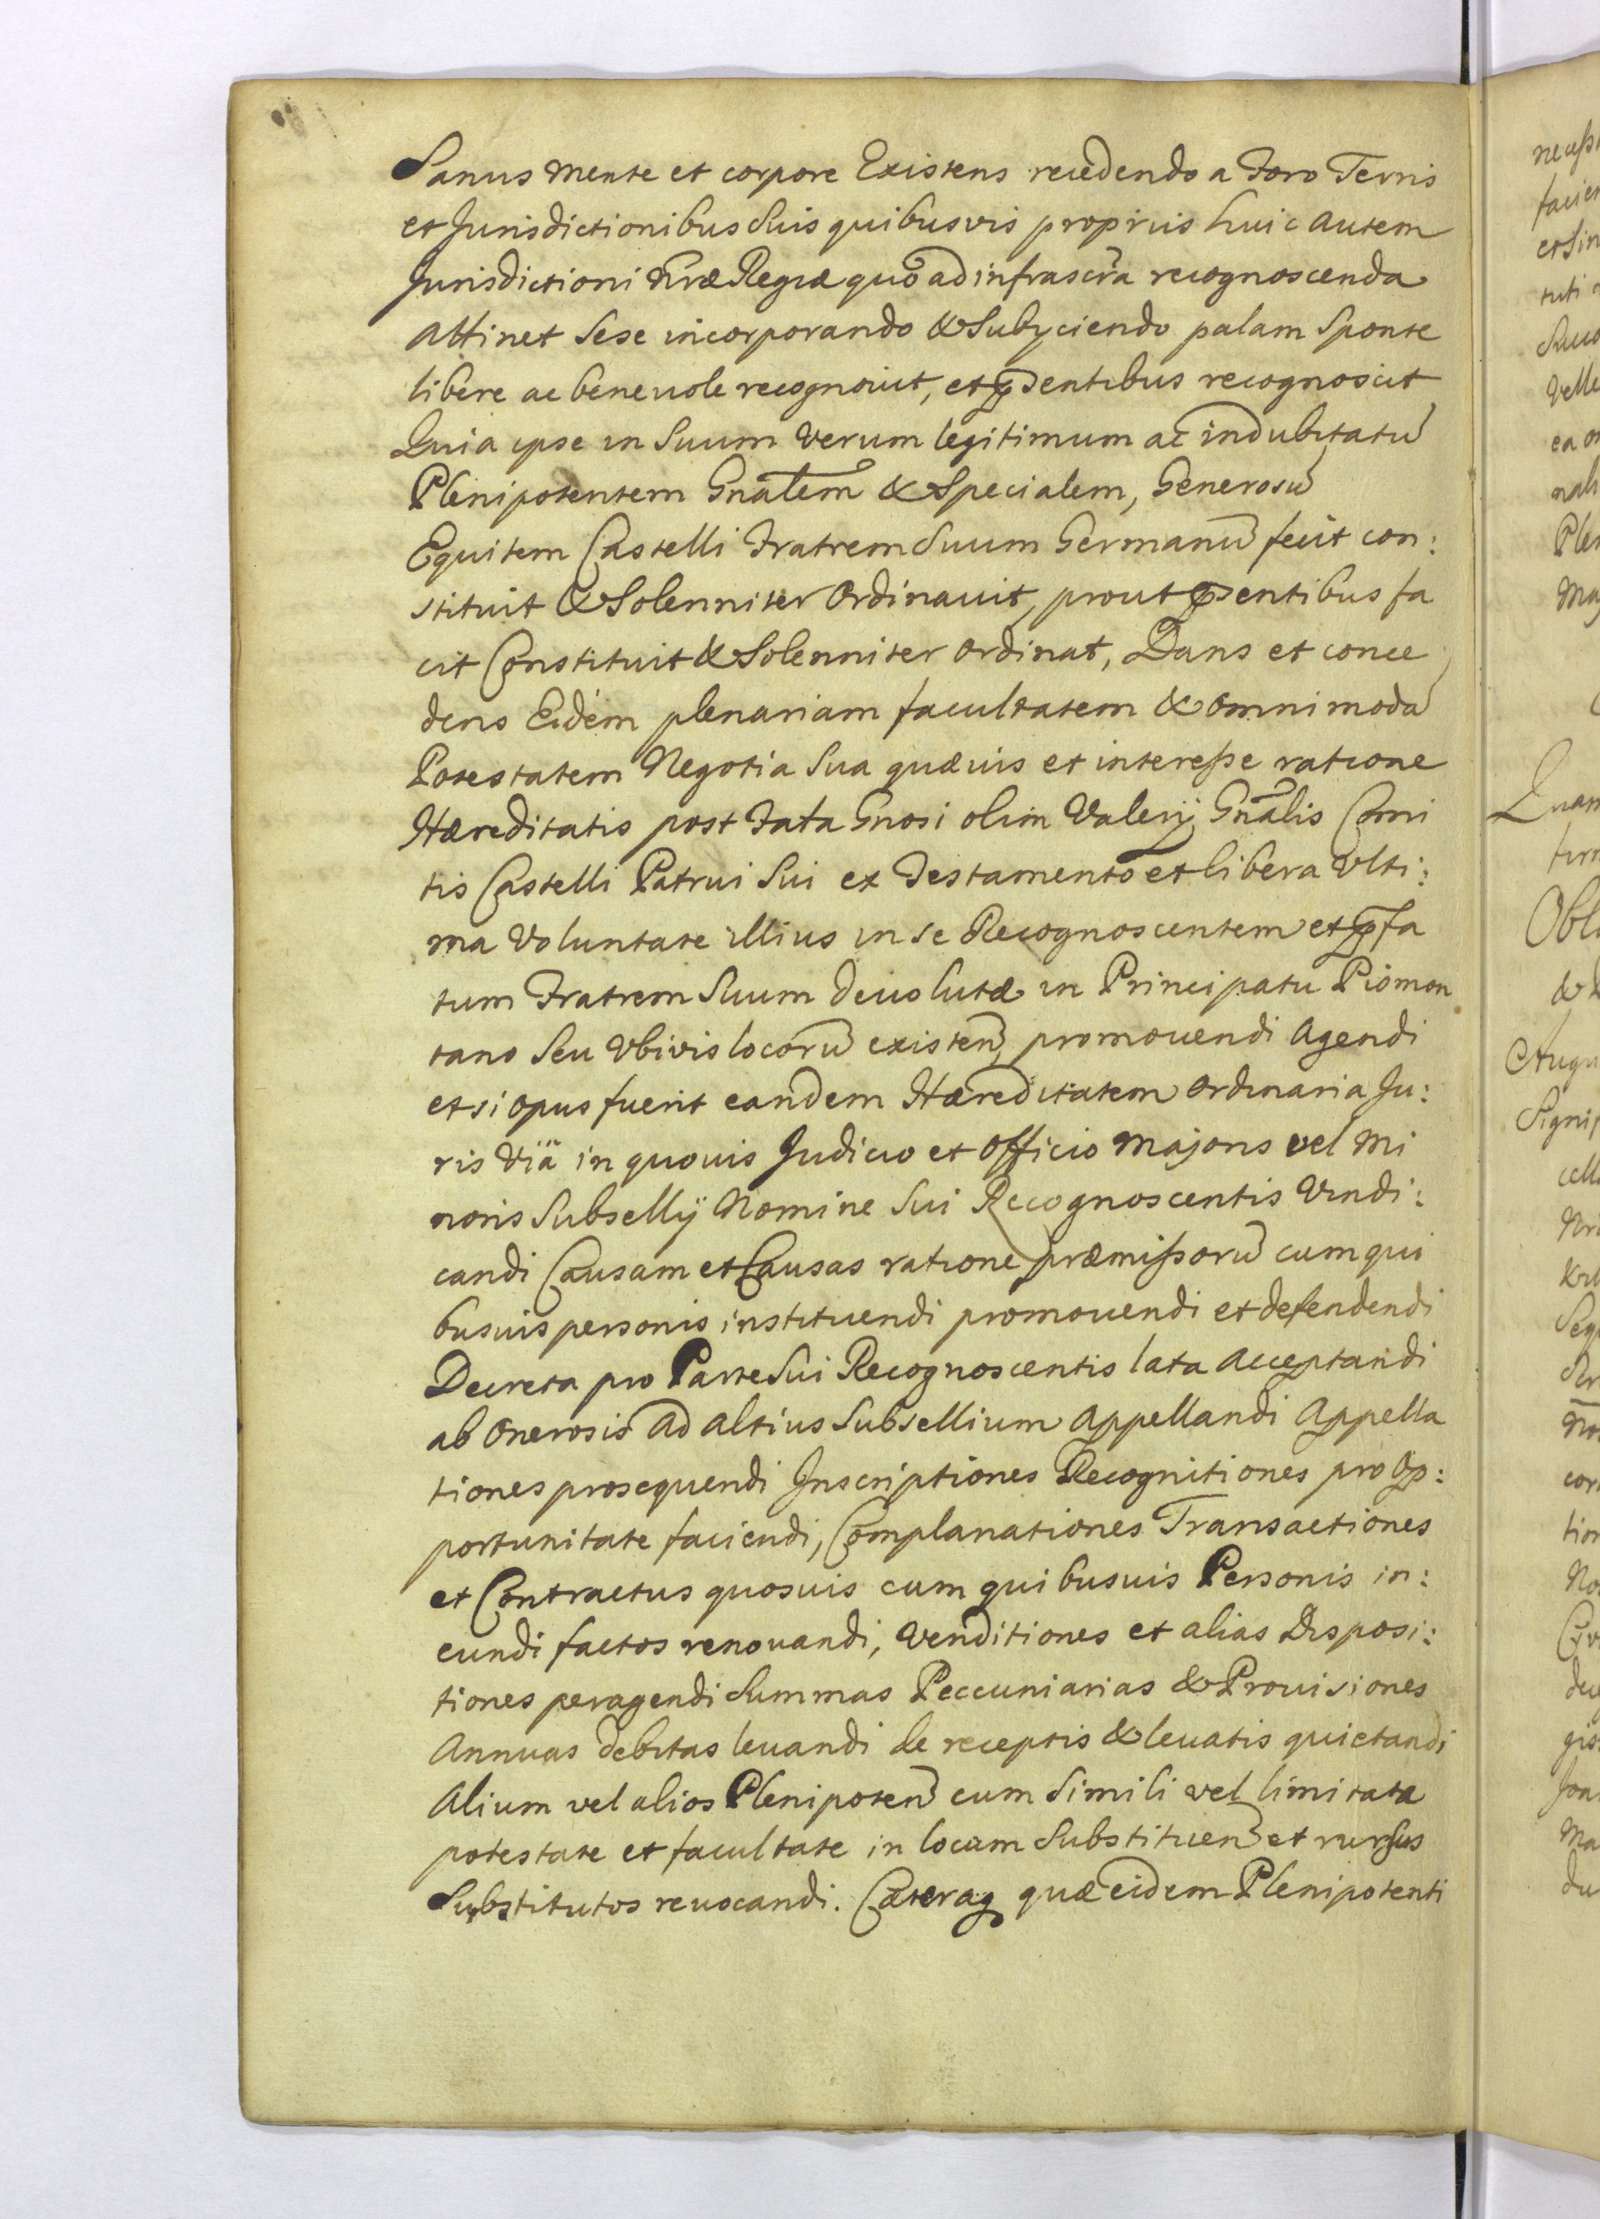 Sanus mente et corpore Existens recedendo a Foro Terris
et Jurisdictionibus Suis quibusvis proprijs huic autem
Jurisdictioni nr̃æ Regiæ quo ad infrascr̃a recognoscenda
Attinet Sese incorporando & Subyciendo palam Sponte
libere ac beneuole recognouit, et p̃sentibus recognoscit
Quia ipse in Suum verum legitimum ac indubitatũ
Plenipotentem Gnãlem & Specialem, Generosũ
Equitem Castelli Fratrem Suum Germanũ fecit con:
stituit & Solenniter Ordinauit, prout p̃sentibus fa
cit Constituit & Solenniter Ordinat, Dans et conce
dens Eidem plenariam facultatem & omnimodã
Potestatem Negotia Sua quæuis et interesse ratione
Hæreditatis post Fata Gnosi olim Valerij Gnãlis Comi
tis Castelli Patrui Sui ex Testamento et libera Vlti:
ma Voluntate illius in se Recognoscentem et p̃fa
tum Fratrem Suum deuolutæ in Principatu Piomon
tano Seu Vbivis locorũ existeñ promouendi Agendi
et si opus fuerit eandem Hæreditatem ordinaria Ju:
ris Viä in quouis Judicio et Officio Majoris vel Mi
noris Subsellÿ Nomine Sui Recognoscentis Vindi:
candi Causam et Causas ratione præmissorũ cum qui
busuis personis instituendi promouendi et defendendi
Decreta pro Parte Sui Recognoscentis lata Acceptandi
ab Onerosis ad altius Subsellium Appellandi Appella
tiones prosequendi Inscriptiones Recognitiones pro Op:
portunitate faciendi, Complanationes Transactiones
et Contractus quosuis cum quibusuis Personis in:
eundi factos renouandi, Venditiones et alias Disposi:
tiones peragendi Summas Peccuniarias & Prouisiones
Annuas debitas leuandi de receptis & leuatis quietandi
Alium vel alios Plenipoteñ cum Simili vel limitata
potestate et facultate in locum Substitueñ et rursus
Substitutos reuocandi. Cæteraq quæ eidem Plenipotenti